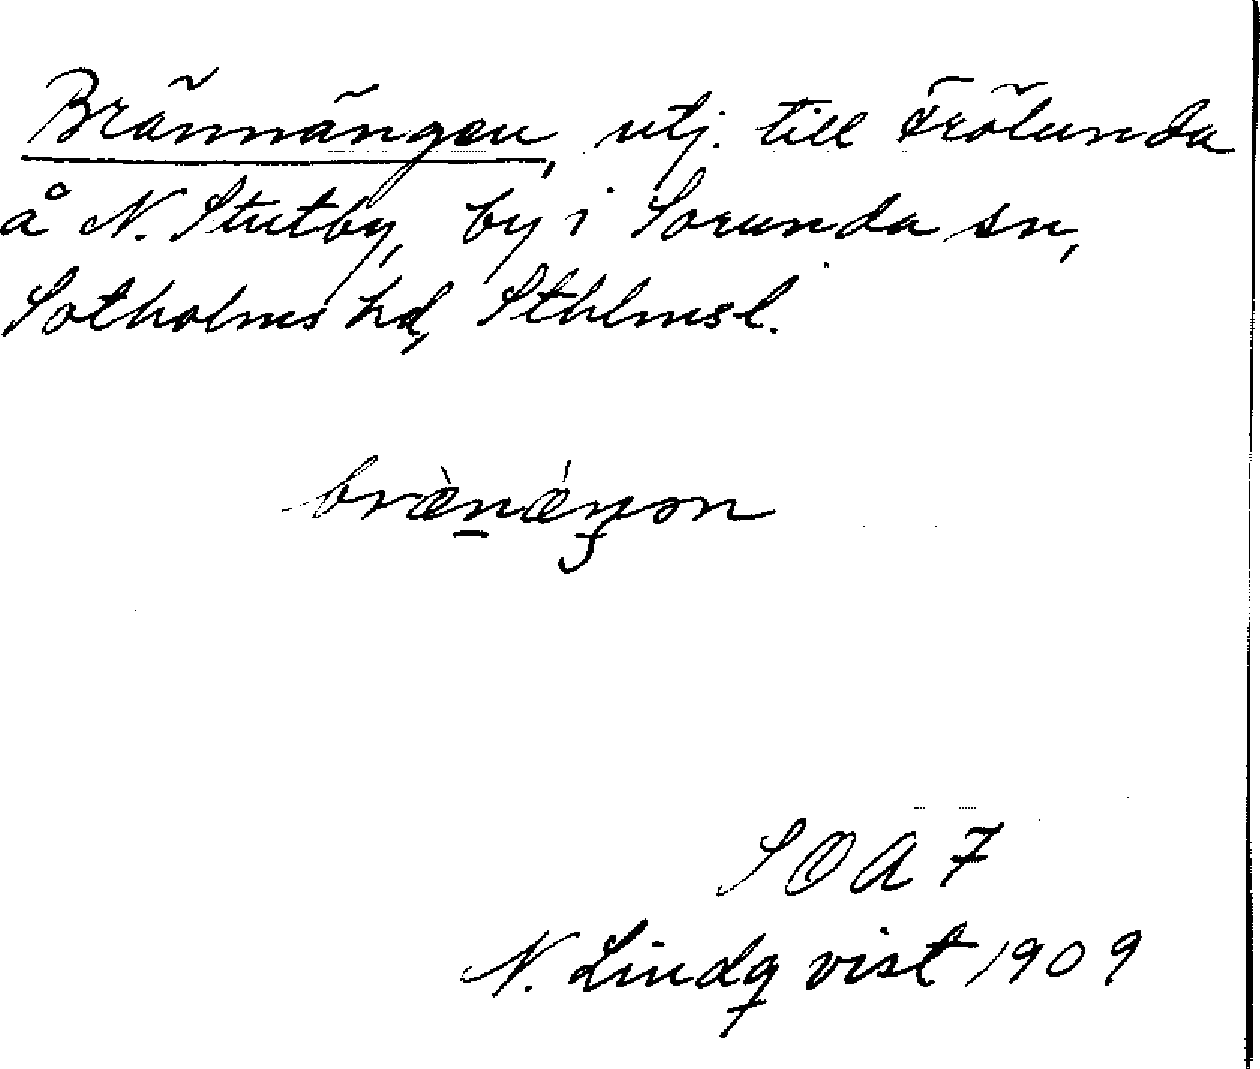 Brännängen, utj. till Frölunda
å N. Stutby, by i Sorunda sn,
Sotholms hd, Sthlms l.
bræ̀nǽŋən
SOA 7
N. Lindqvist 1909